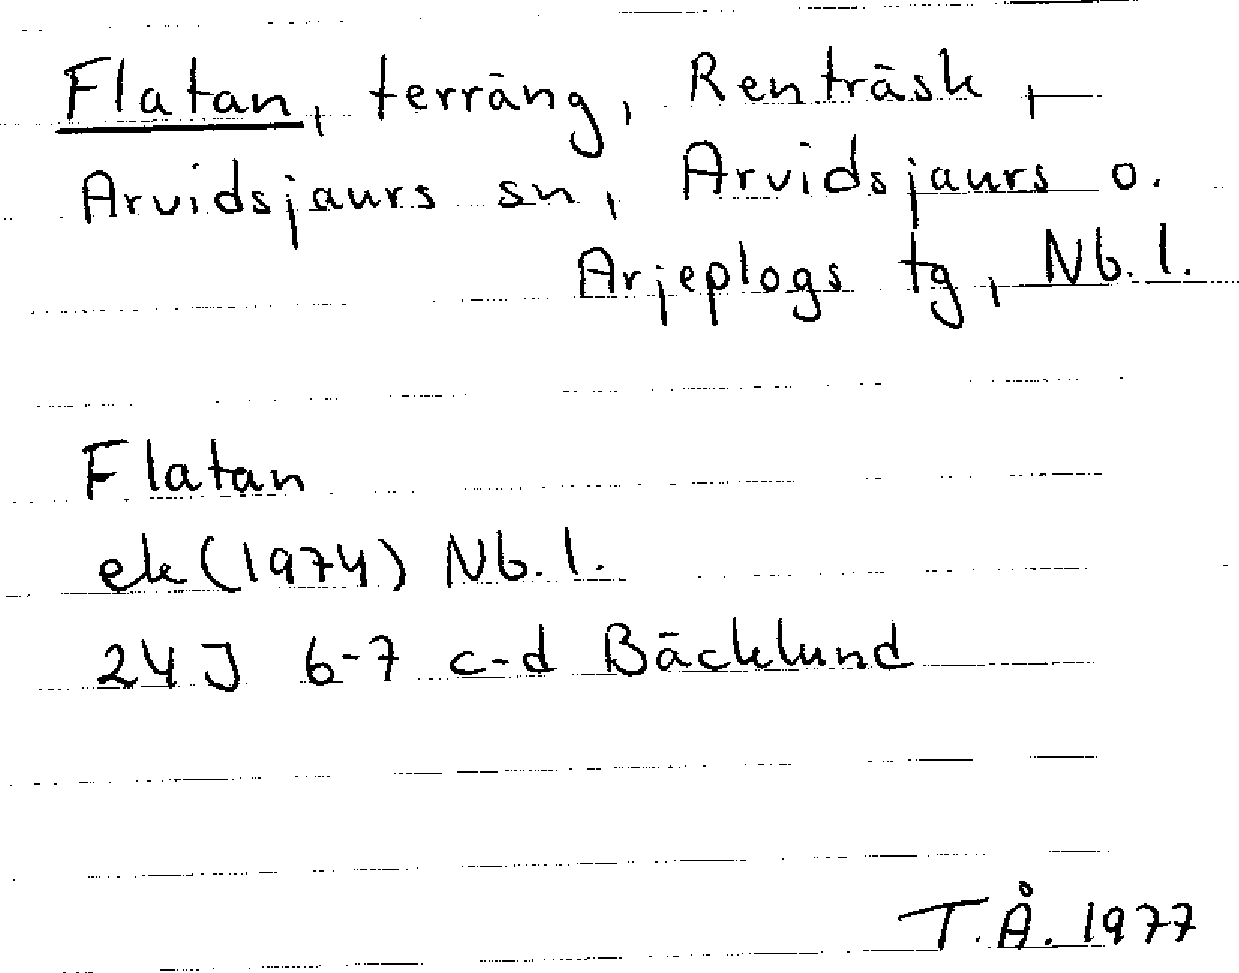 Flatan, terräng, Renträsk,
Arvidsjaurs sn, Arvidsjaurs o.
Arjeplogs tg, Nb. l.
Flatan
ek (1974) Nb. l.
24 J 6-7 c-d Bäcklund
T.Å. 1977